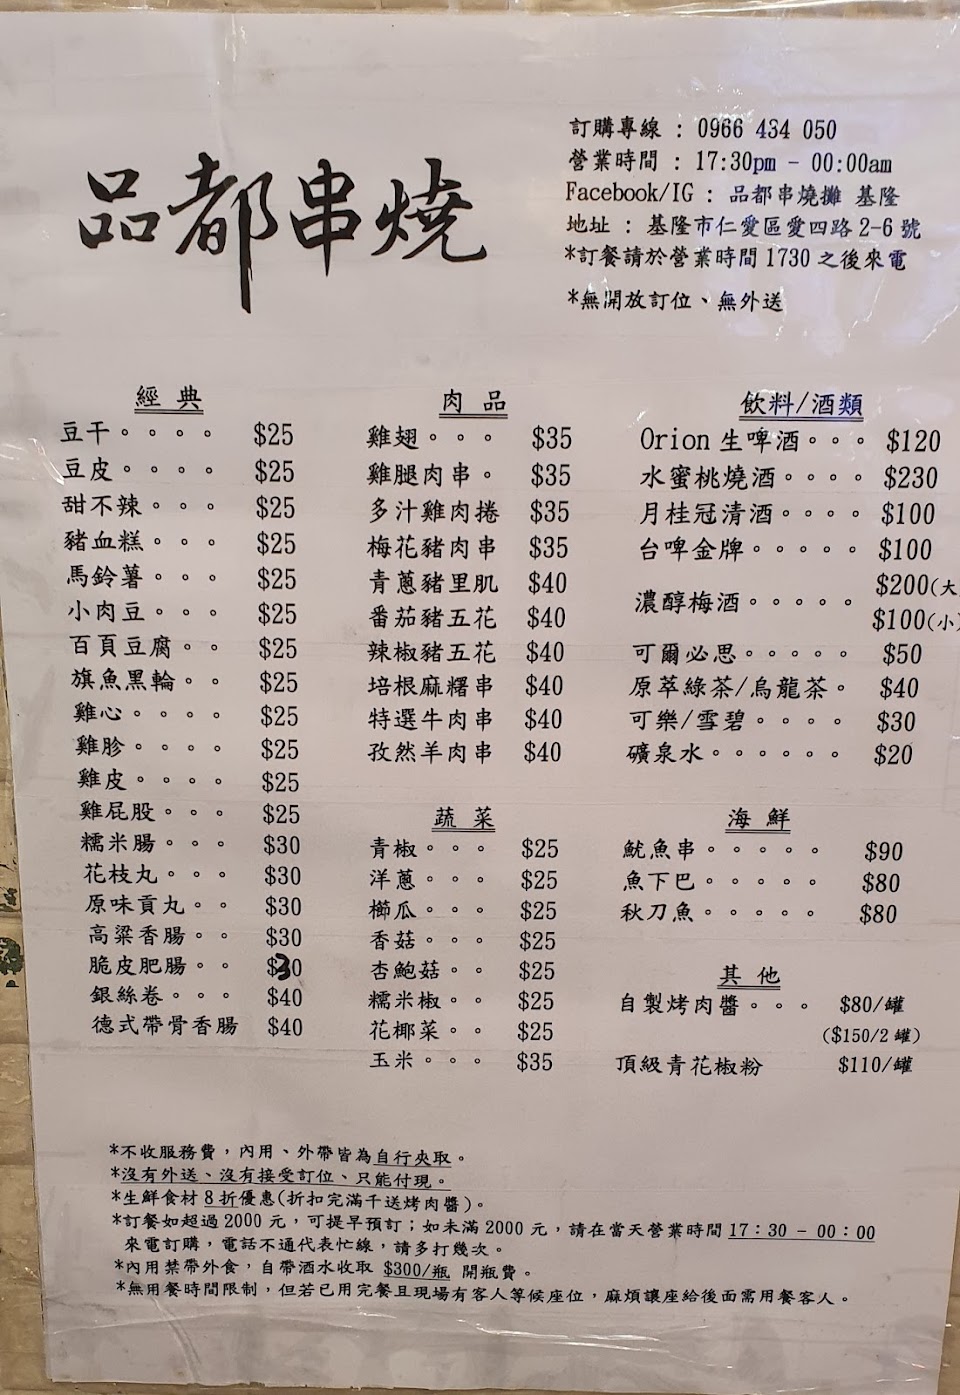 品都串燒
訂購專線 : 0966 434 050
營業時間 : 17:30pm - 00:00am
Facebook/IG : 品都串燒攤 基隆
地址 : 基隆市仁愛區愛四路 2-6 號
*訂餐請於營業時間 1730 之後來電
*無開放訂位、無外送
經 典
豆干。。。。 $25
豆皮。。。。 $25
甜不辣。。。 $25
豬血糕。。。 $25
馬鈴薯。。。 $25
小肉豆。。。 $25
百頁豆腐。。 $25
旗魚黑輪。。 $25
雞心。。。。 $25
雞胗。。。。 $25
雞皮。。。。 $25
雞屁股。。。 $25
糯米腸。。。 $30
花枝丸。。。 $30
原味貢丸。。 $30
高粱香腸。。 $30
脆皮肥腸。。 $30
銀絲卷。。。 $40
德式帶骨香腸 $40
肉 品
雞翅。。。 $35
雞腿肉串。 $35
多汁雞肉捲 $35
梅花豬肉串 $35
青蔥豬里肌 $40
番茄豬五花 $40
辣椒豬五花 $40
培根麻糬串 $40
特選牛肉串 $40
孜然羊肉串 $40
蔬 菜
青椒。。。 $25
洋蔥。。。 $25
櫛瓜。。。 $25
香菇。。。 $25
杏鮑菇。。 $25
糯米椒。。 $25
花椰菜。。 $25
玉米。。。 $35
飲料/酒類
Orion 生啤酒。。。 $120
水蜜桃燒酒。。。。 $230
月桂冠清酒。。。。 $100
台啤金牌。。。。。 $100
濃醇梅酒。。。。。 $200(大
$100(小)
可爾必思。。。。。 $50
原萃綠茶/烏龍茶。 $40
可樂/雪碧。。。。 $30
礦泉水。。。。。。 $20
海 鮮
魷魚串。。。。。 $90
魚下巴。。。。。 $80
秋刀魚。。。。。 $80
其 他
自製烤肉醬。。。 $80/罐
($150/2 罐)
頂級青花椒粉 $110/罐
*不收服務費，內用、外帶皆為自行夾取。
*沒有外送、沒有接受訂位、只能付現。
*生鮮食材 8 折優惠(折扣完滿千送烤肉醬)。
*訂餐如超過 2000 元，可提早預訂；如未滿 2000 元，請在當天營業時間 17：30 - 00：00
來電訂購，電話不通代表忙線，請多打幾次。
*內用禁帶外食，自帶酒水收取 $300/瓶 開瓶費。
*無用餐時間限制，但若已用完餐且現場有客人等候座位，麻煩讓座給後面需用餐客人。